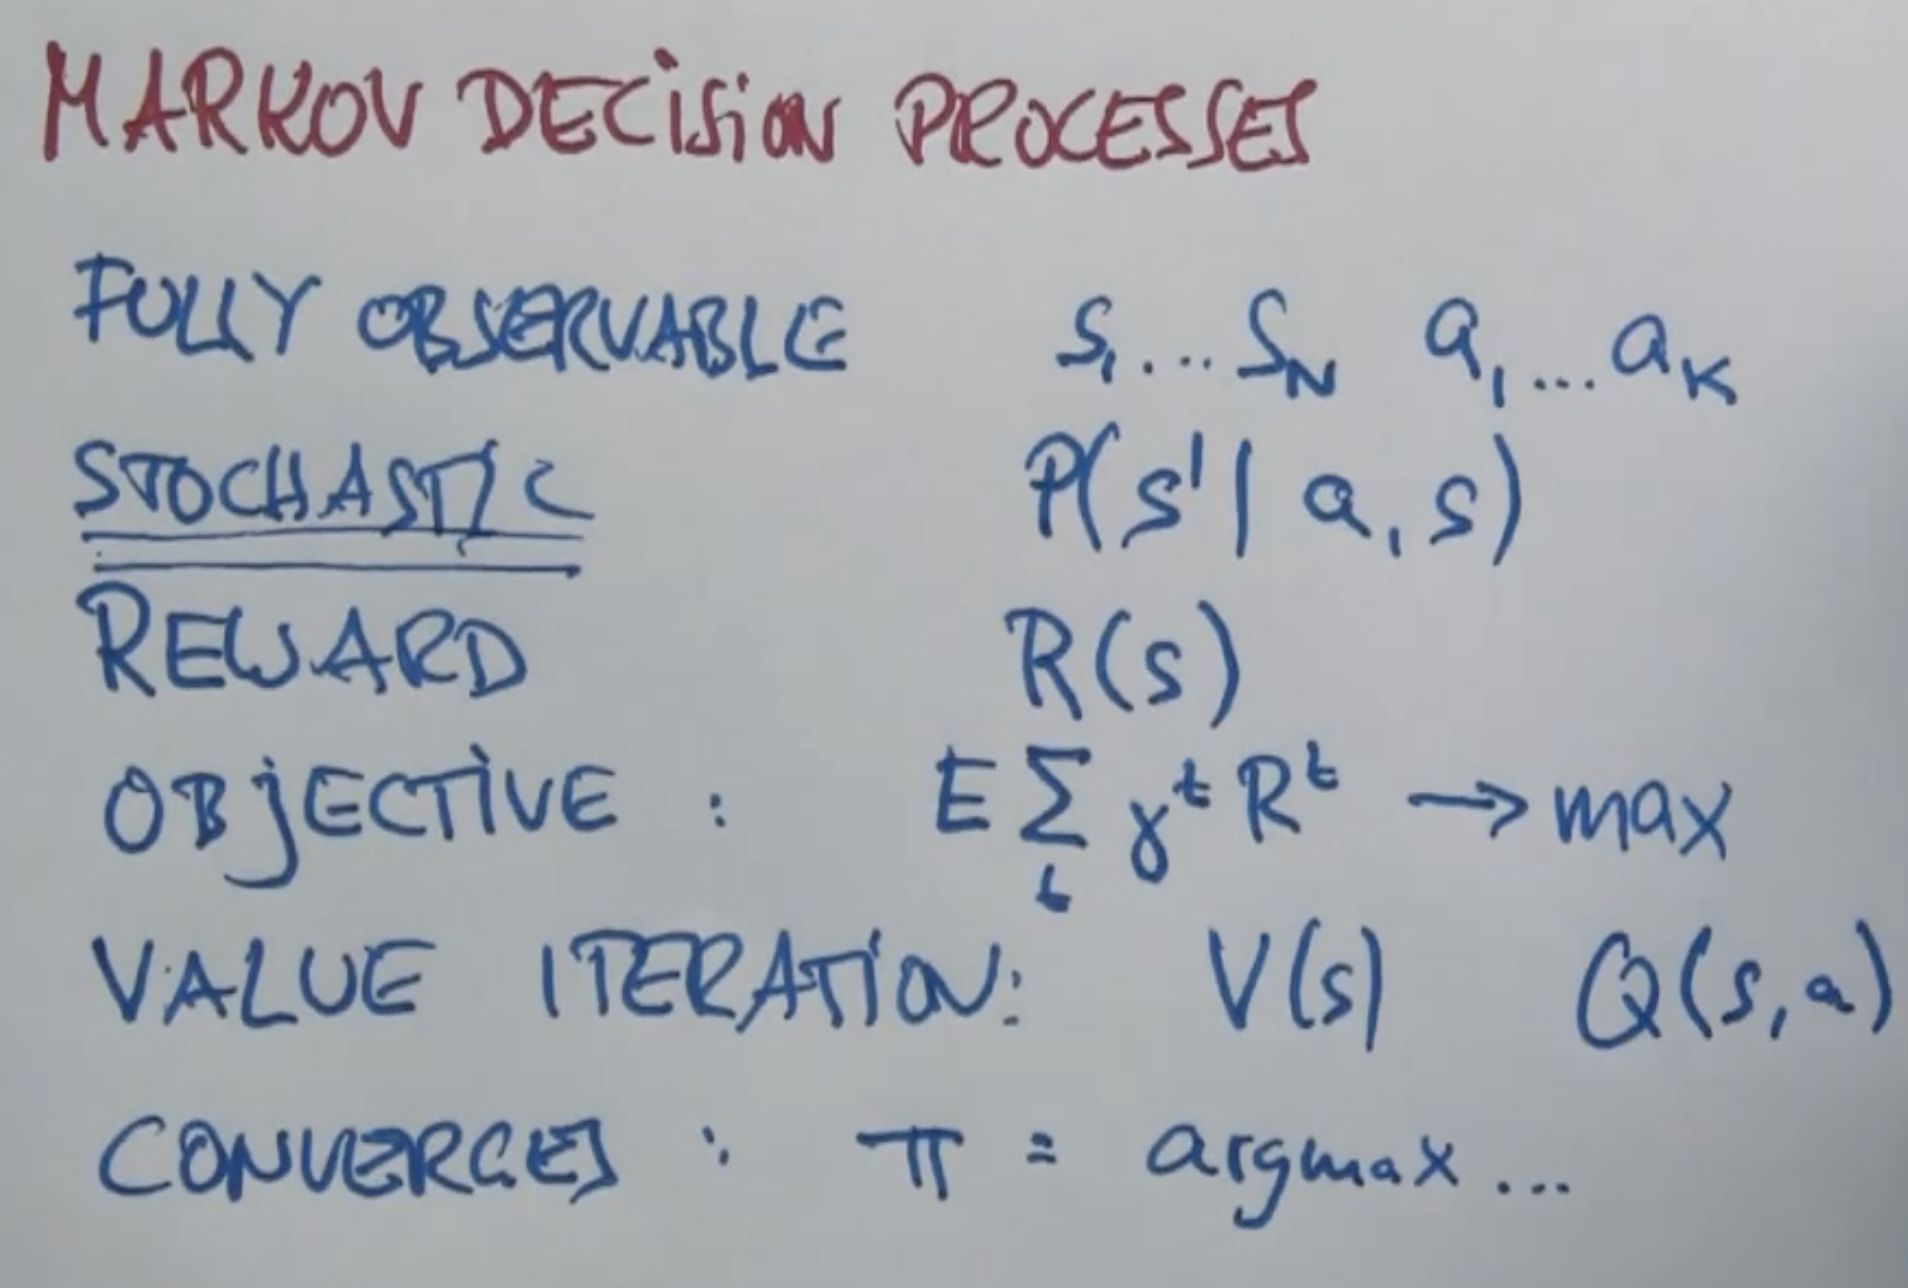 MARKOV DECISION PROCESSES
FULLY OBSERVABLE s₁...s_N a₁...a_K
STOCHASTIC P(s'| a, s)
REWARD R(s)
OBJECTIVE : E Σ_t γ^t R^t → max
VALUE ITERATION: V(s) Q(s,a)
CONVERGES : π = argmax ...